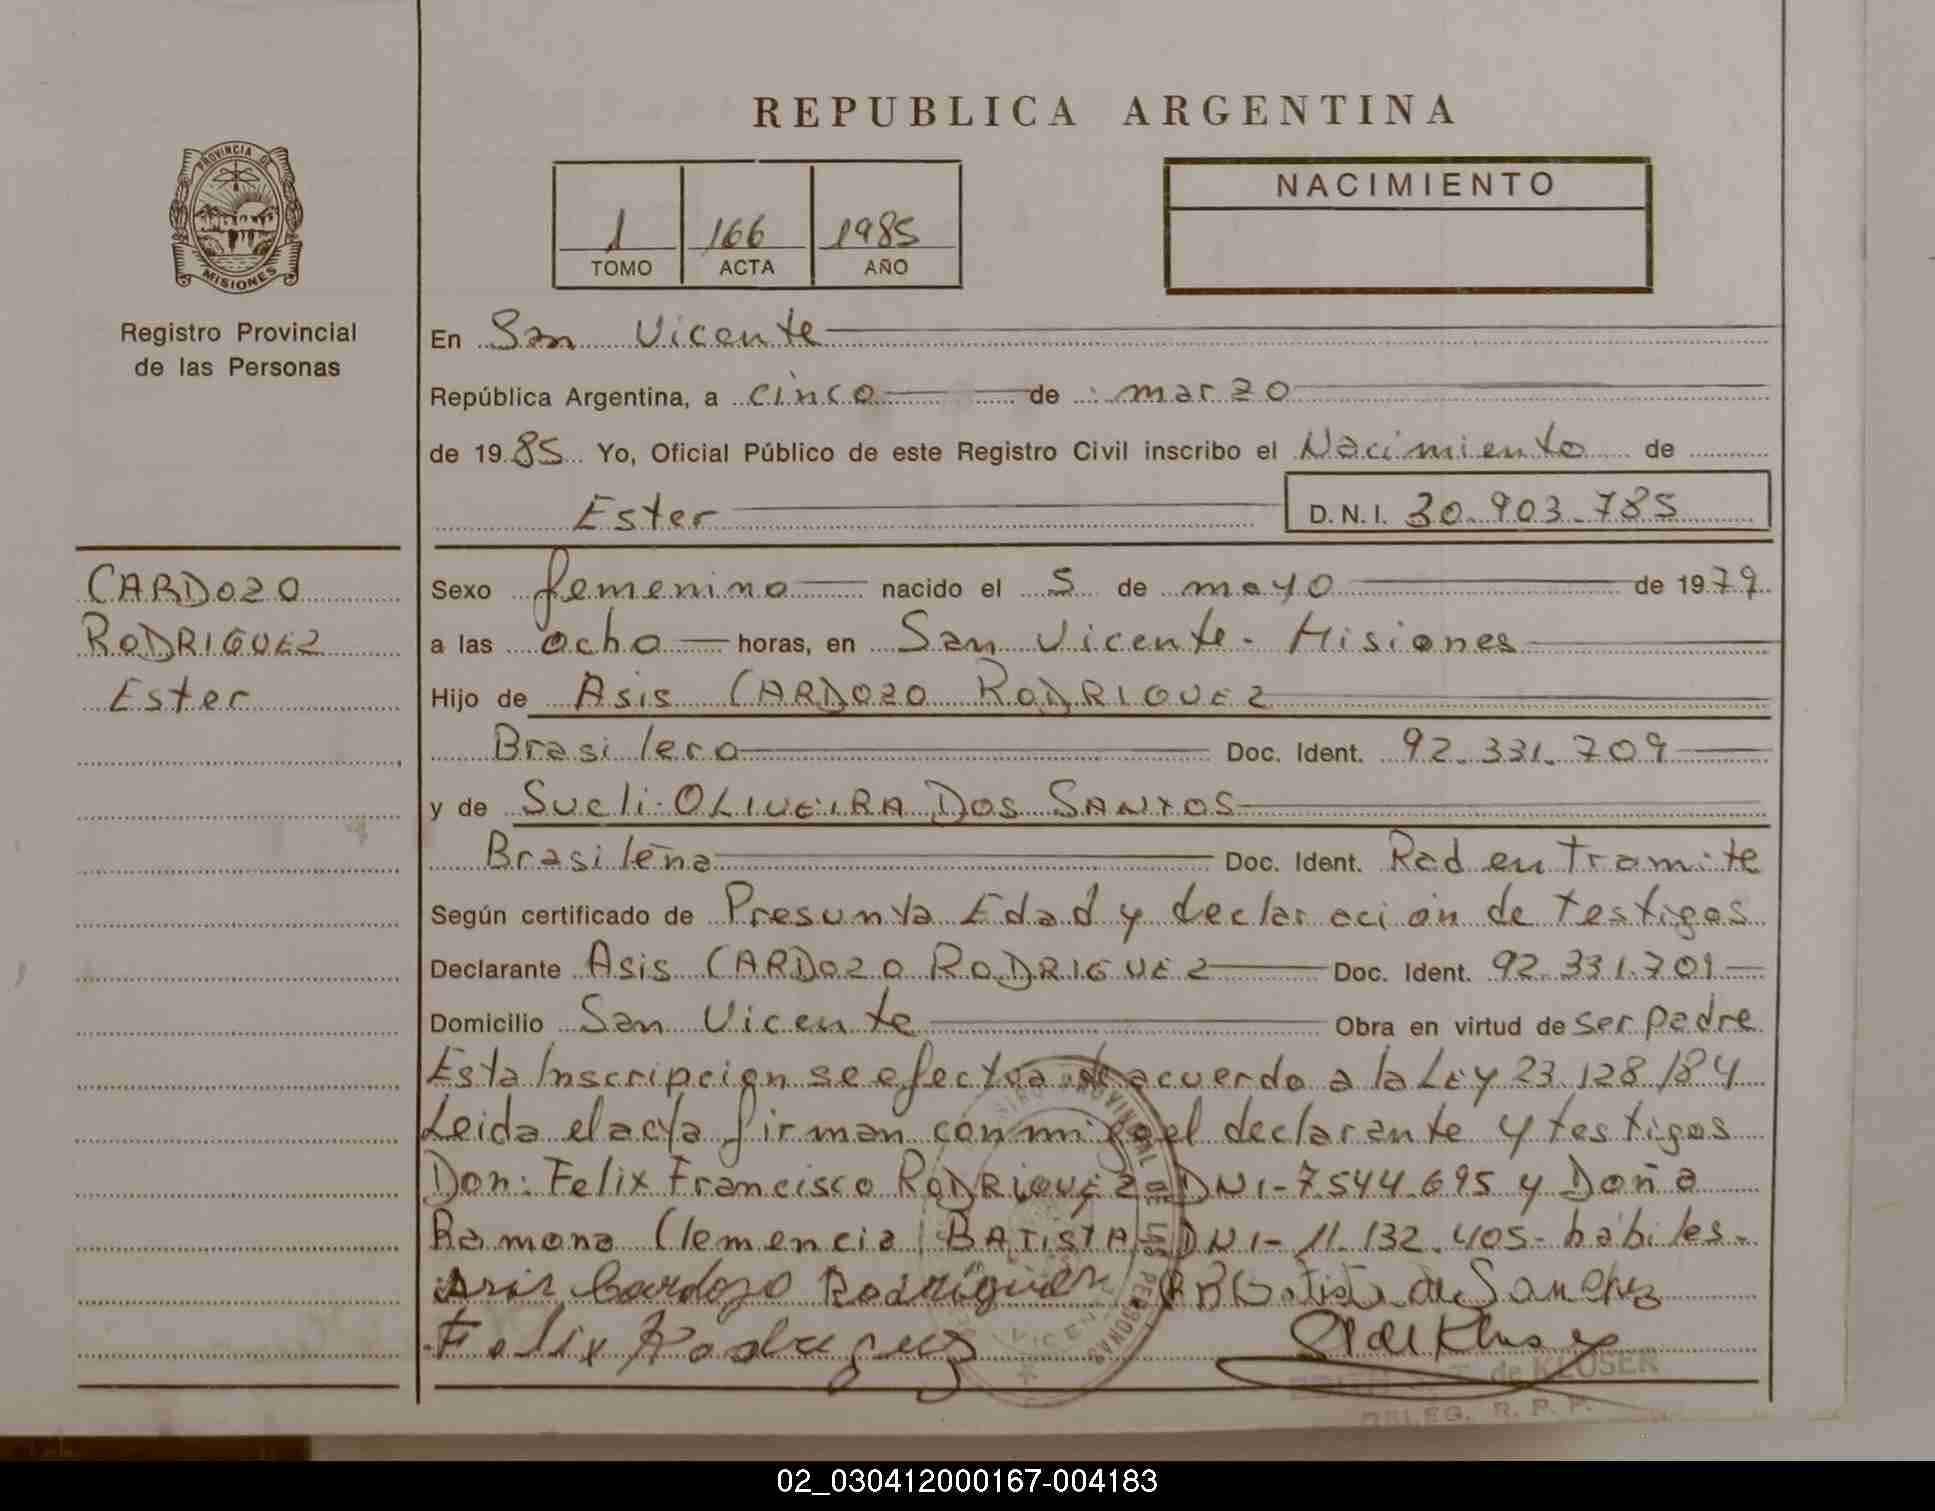 REPUBLICA ARGENTINA
PROVINCIA DE
MISIONES
Registro Provincial
de las Personas
1 166 1985
TOMO ACTA AÑO
NACIMIENTO
En San Vicente
República Argentina, a cinco de marzo
de 19 85 Yo, Oficial Público de este Registro Civil inscribo el Nacimiento de
Ester D.N.I. 30.903.785
CARDOZO
RODRIGUEZ
Ester
Sexo femenino nacido el 5 de mayo de 1979
a las ocho horas, en San Vicente - Misiones
Hijo de Asis CARDOZO RODRIGUEZ
Brasilero Doc. Ident. 92.331.709
y de Sueli OLIVEIRA DOS SANTOS
Brasileña Doc. Ident. Rad en Tramite
Según certificado de Presunta Edad y declaración de testigos
Declarante Asis CARDOZO RODRIGUEZ Doc. Ident. 92.331.709
Domicilio San Vicente Obra en virtud de ser padre
Esta Inscripcion se efectua de acuerdo a la Ley 23.128/84
Leida el acta firman conmigo el declarante y testigos
Don: Felix Francisco RODRIGUEZ DNI-7.544.695 y Doña
Ramona Clemencia BATISTA DNI- 11.132.405- habiles-
Asis Cardozo Rodriguez R B Batista de Sanchez
Felix Rodriguez
de KLUSER
DELEG. R. P. P.
REGISTRO PROVINCIAL DE LAS PERSONAS
02_030412000167-004183